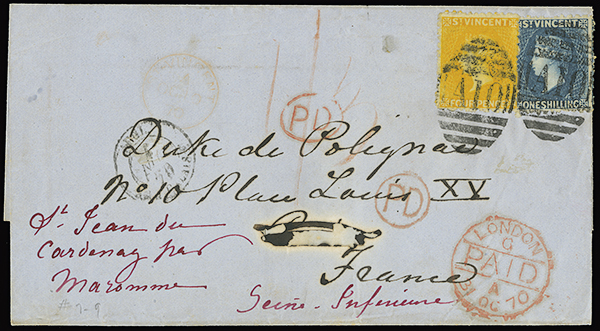 ST VINCENT ST VINCENT
FOUR PENCE ONE SHILLING
A10
PD
Duke de Polignac
No 10 Place Louis XV
PD
St Jean du
Cardenay par
Maromme
France
Seine-Inférieure
LONDON
PAID
A
OC 70
# 7-9